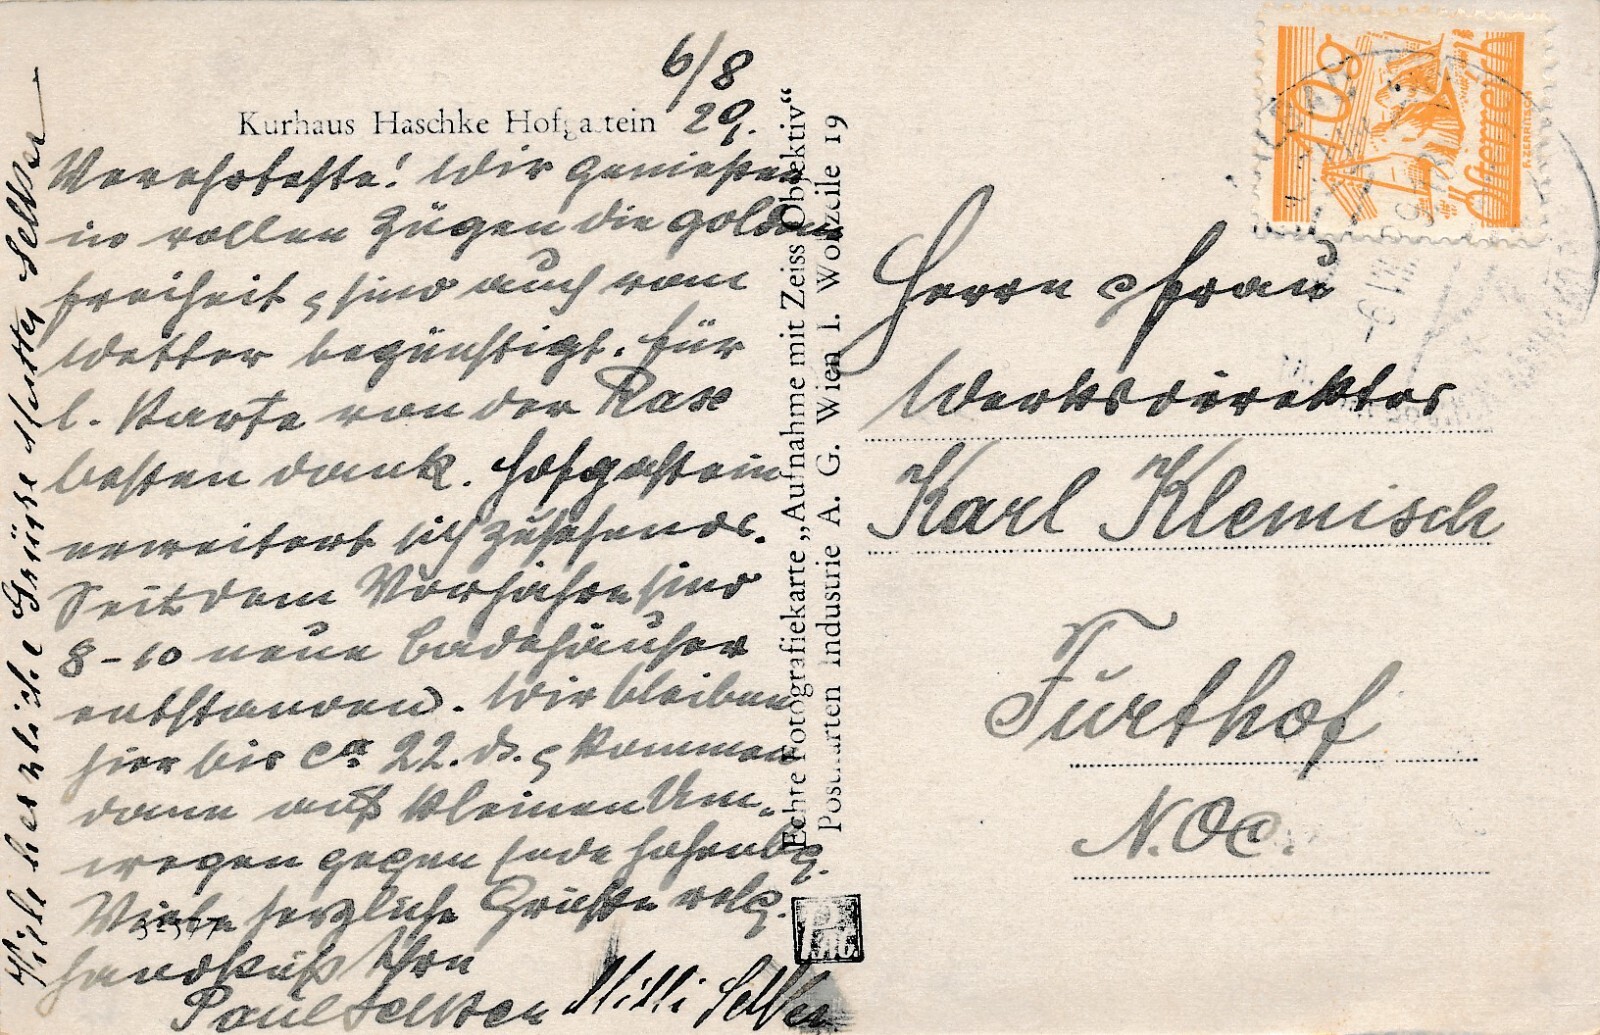 6/8
29.
Kurhaus Haschke Hofgastein
Verehrteste! Wir genießen
in vollen Zügen die goldene
Freiheit, sind auch vom
Wetter begünstigt. Für
l. Karte von der Rax
besten Dank. Hofgastein
erweitert sich zusehends.
Seit dem Vorjahre sind
8-10 neue Badehäuser
entstanden. Wir bleiben
hier bis ca 22. d. & kommen
dann auf kleinen Um-
wegen gegen Ende
Viele herzliche Grüße
Handkuß Ihre
Paul Milli
Viele herzliche Grüße Mutter
32377
Echte Fotografiekarte „Aufnahme mit Zeiss Objektiv“
Postkarten Industrie A. G. Wien I. Wollzeile 19
P.I.AG.
10g
Österreich
Herrn & Frau
Werksdirektor
Karl Klemisch
Furthof
N.Oe.